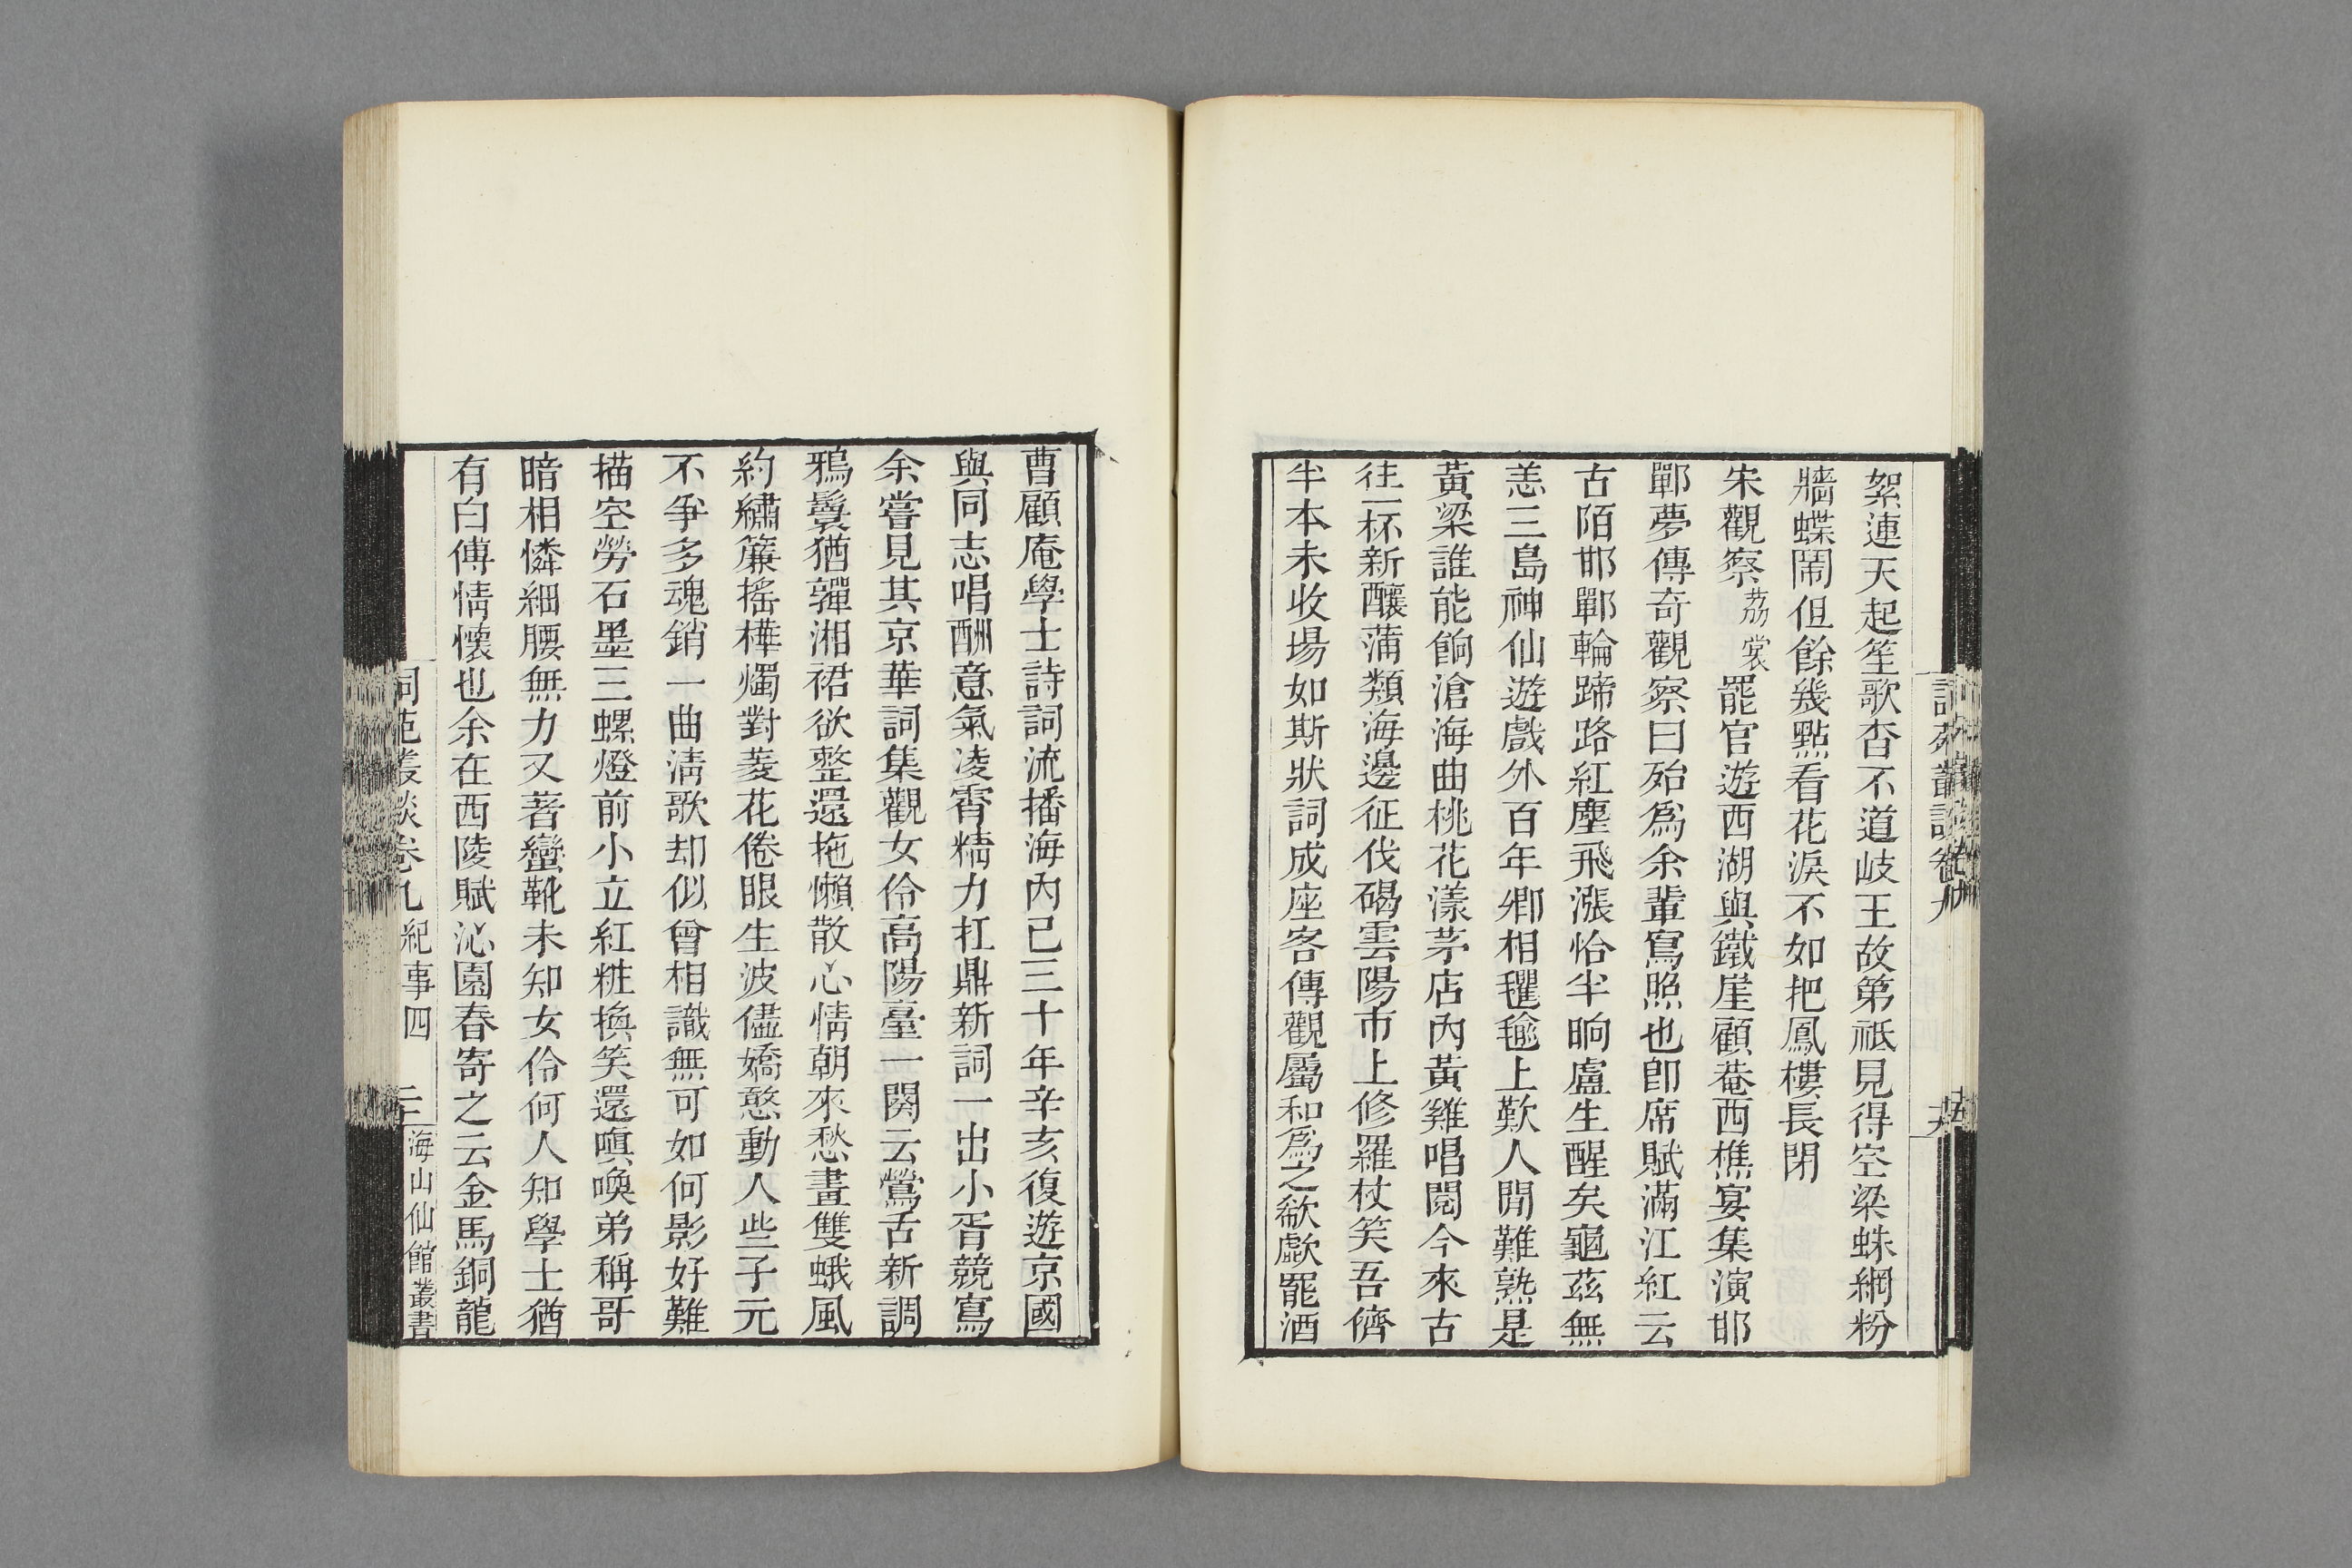 絮連天起笙歌杳不道岐王故第祇見得空梁蛛網粉
牆蝶鬧但餘幾點看花淚不如把鳳樓長閉
宋觀察荔裳罷官遊西湖與鐵崖顧菴西樵宴集演邯
鄲夢傳奇觀察曰殆爲余輩寫照也卽席賦滿江紅云
古陌邯鄲輪蹄路紅塵飛漲恰半晌盧生醒矣龜茲無
恙三島神仙遊戲外百年卿相氍毹上歎人閒難熟是
黃粱誰能餉滄海曲桃花漾茅店內黃雞唱閱今來古
往一杯新釀蒲類海邊征伐碣雲陽市上修羅杖笑吾儕
半本未收場如斯狀詞成座客傳觀屬和爲之欷歔罷酒
曹顧庵學士詩詞流播海內已三十年辛亥復遊京國
與同志唱酬意氣凌霄精力扛鼎新詞一出小胥競寫
余嘗見其京華詞集觀女伶高陽臺一闋云鶯舌新調
鴉鬟猶嚲湘裙欲整還拖懶散心情朝來愁畫雙蛾風
約繡簾搖樺燭對菱花倦眼生波儘嬌憨動人些子元
不爭多魂銷一曲淸歌却似曾相識無可如何影好難
描空勞石墨三螺燈前小立紅粧換笑還嗔喚弟稱哥
暗相憐細腰無力又著蠻靴未知女伶何人知學士猶
有白傅情懷也余在西陵賦沁園春寄之云金馬銅龍
詞苑叢談卷九 紀事四
海山仙館叢書